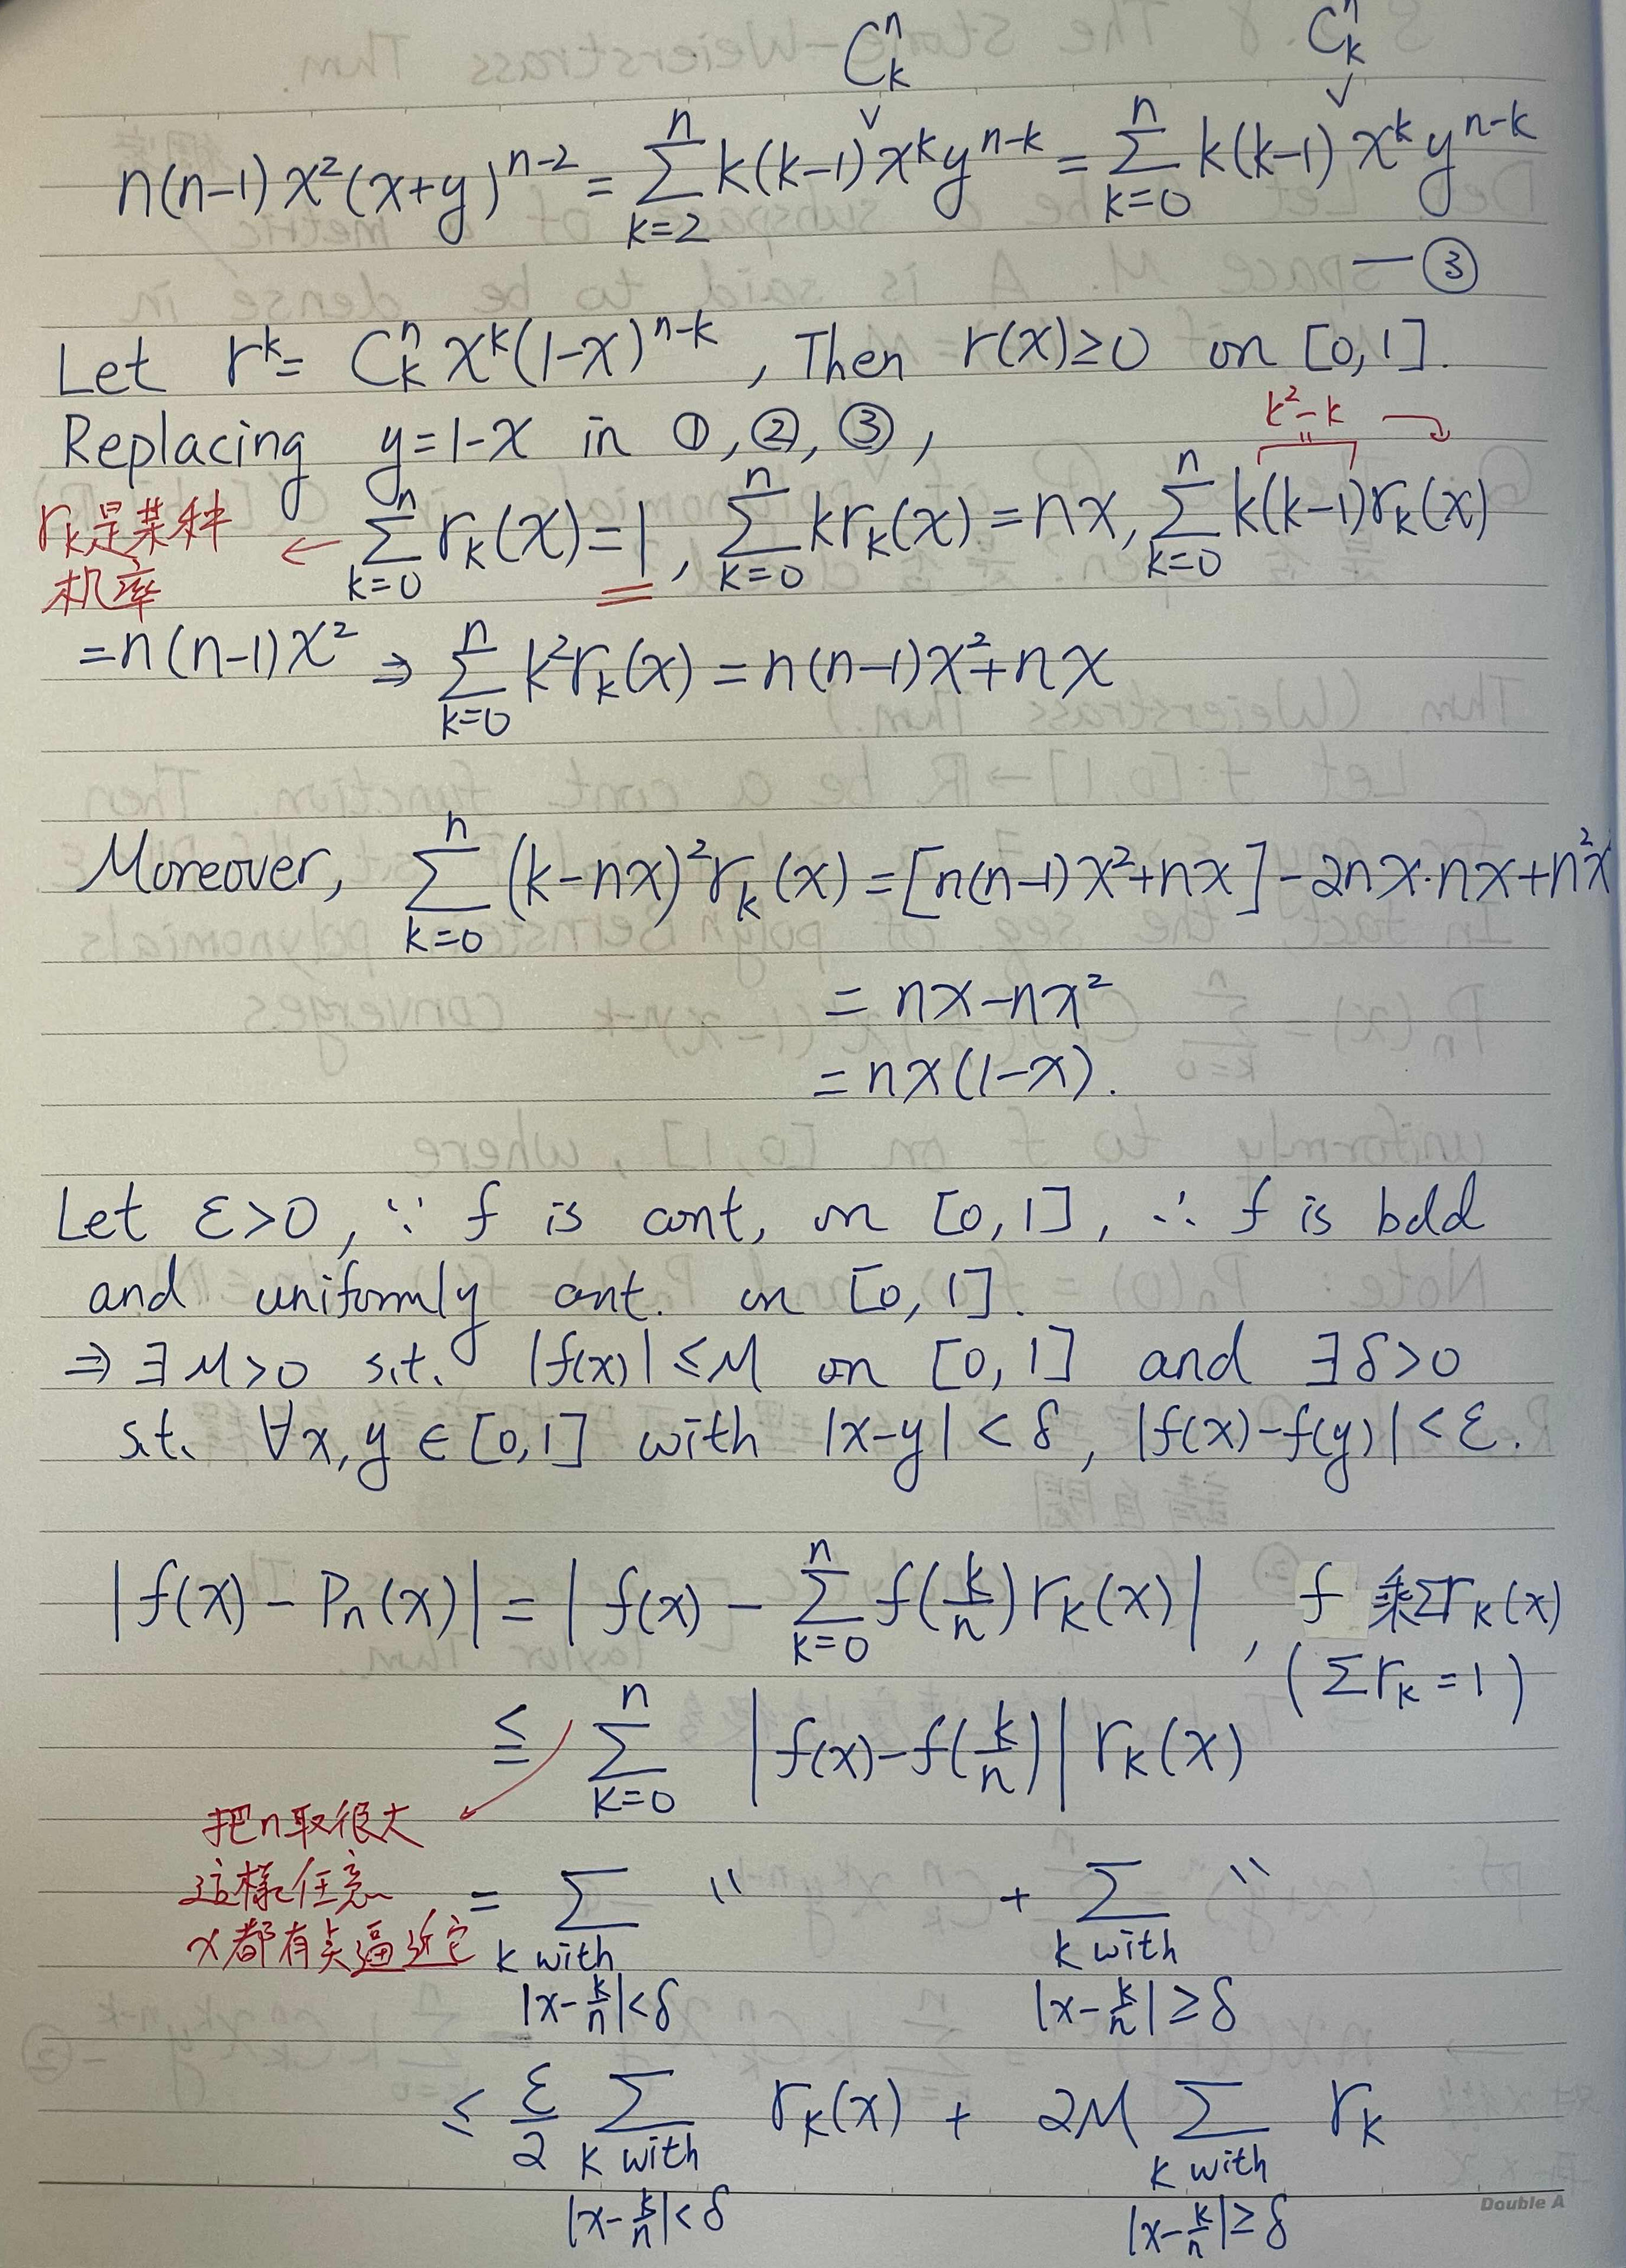 C^n_k C^n_k
n(n-1)x²(x+y)^{n-2} = Σ_{k=2}^{n} k(k-1) ∨ x^k y^{n-k} = Σ_{k=0}^{n} k(k-1) ∨ x^k y^{n-k}
— ③
Let r^k = C^n_k x^k (1-x)^{n-k}, Then r(x) ≥ 0 on [0,1].
k²-k
Replacing y=1-x in ①,②,③,
r_k是某种
机率
← Σ_{k=0}^{n} r_k(x) = 1, Σ_{k=0}^{n} k r_k(x) = nx, Σ_{k=0}^{n} k(k-1) r_k(x)
= n(n-1)x² ⇒ Σ_{k=0}^{n} k² r_k(x) = n(n-1)x² + nx
Moreover, Σ_{k=0}^{n} (k-nx)² r_k(x) = [n(n-1)x²+nx] - 2nx·nx + n²x
= nx - nx²
= nx(1-x).
Let ε>0, ∵ f is cont, on [0,1], ∴ f is bdd
and uniformly cont. on [0,1].
⇒ ∃M>0 s.t. |f(x)| ≤ M on [0,1] and ∃δ>0
s.t. ∀x,y ∈ [0,1] with |x-y| < δ, |f(x)-f(y)| < ε.
|f(x) - P_n(x)| = | f(x) - Σ_{k=0}^{n} f(k/n) r_k(x) |, f 乘Σr_k(x)
(Σr_k = 1)
≤ Σ_{k=0}^{n} | f(x) - f(k/n) | r_k(x)
把n取很大
这樣任意
x都有点逼近它
= Σ_{k with |x-k/n|<δ} '' + Σ_{k with |x-k/n|≥δ} ''
≤ ε/2 Σ_{k with |x-k/n|<δ} r_k(x) + 2M Σ_{k with |x-k/n|≥δ} r_k
Double A